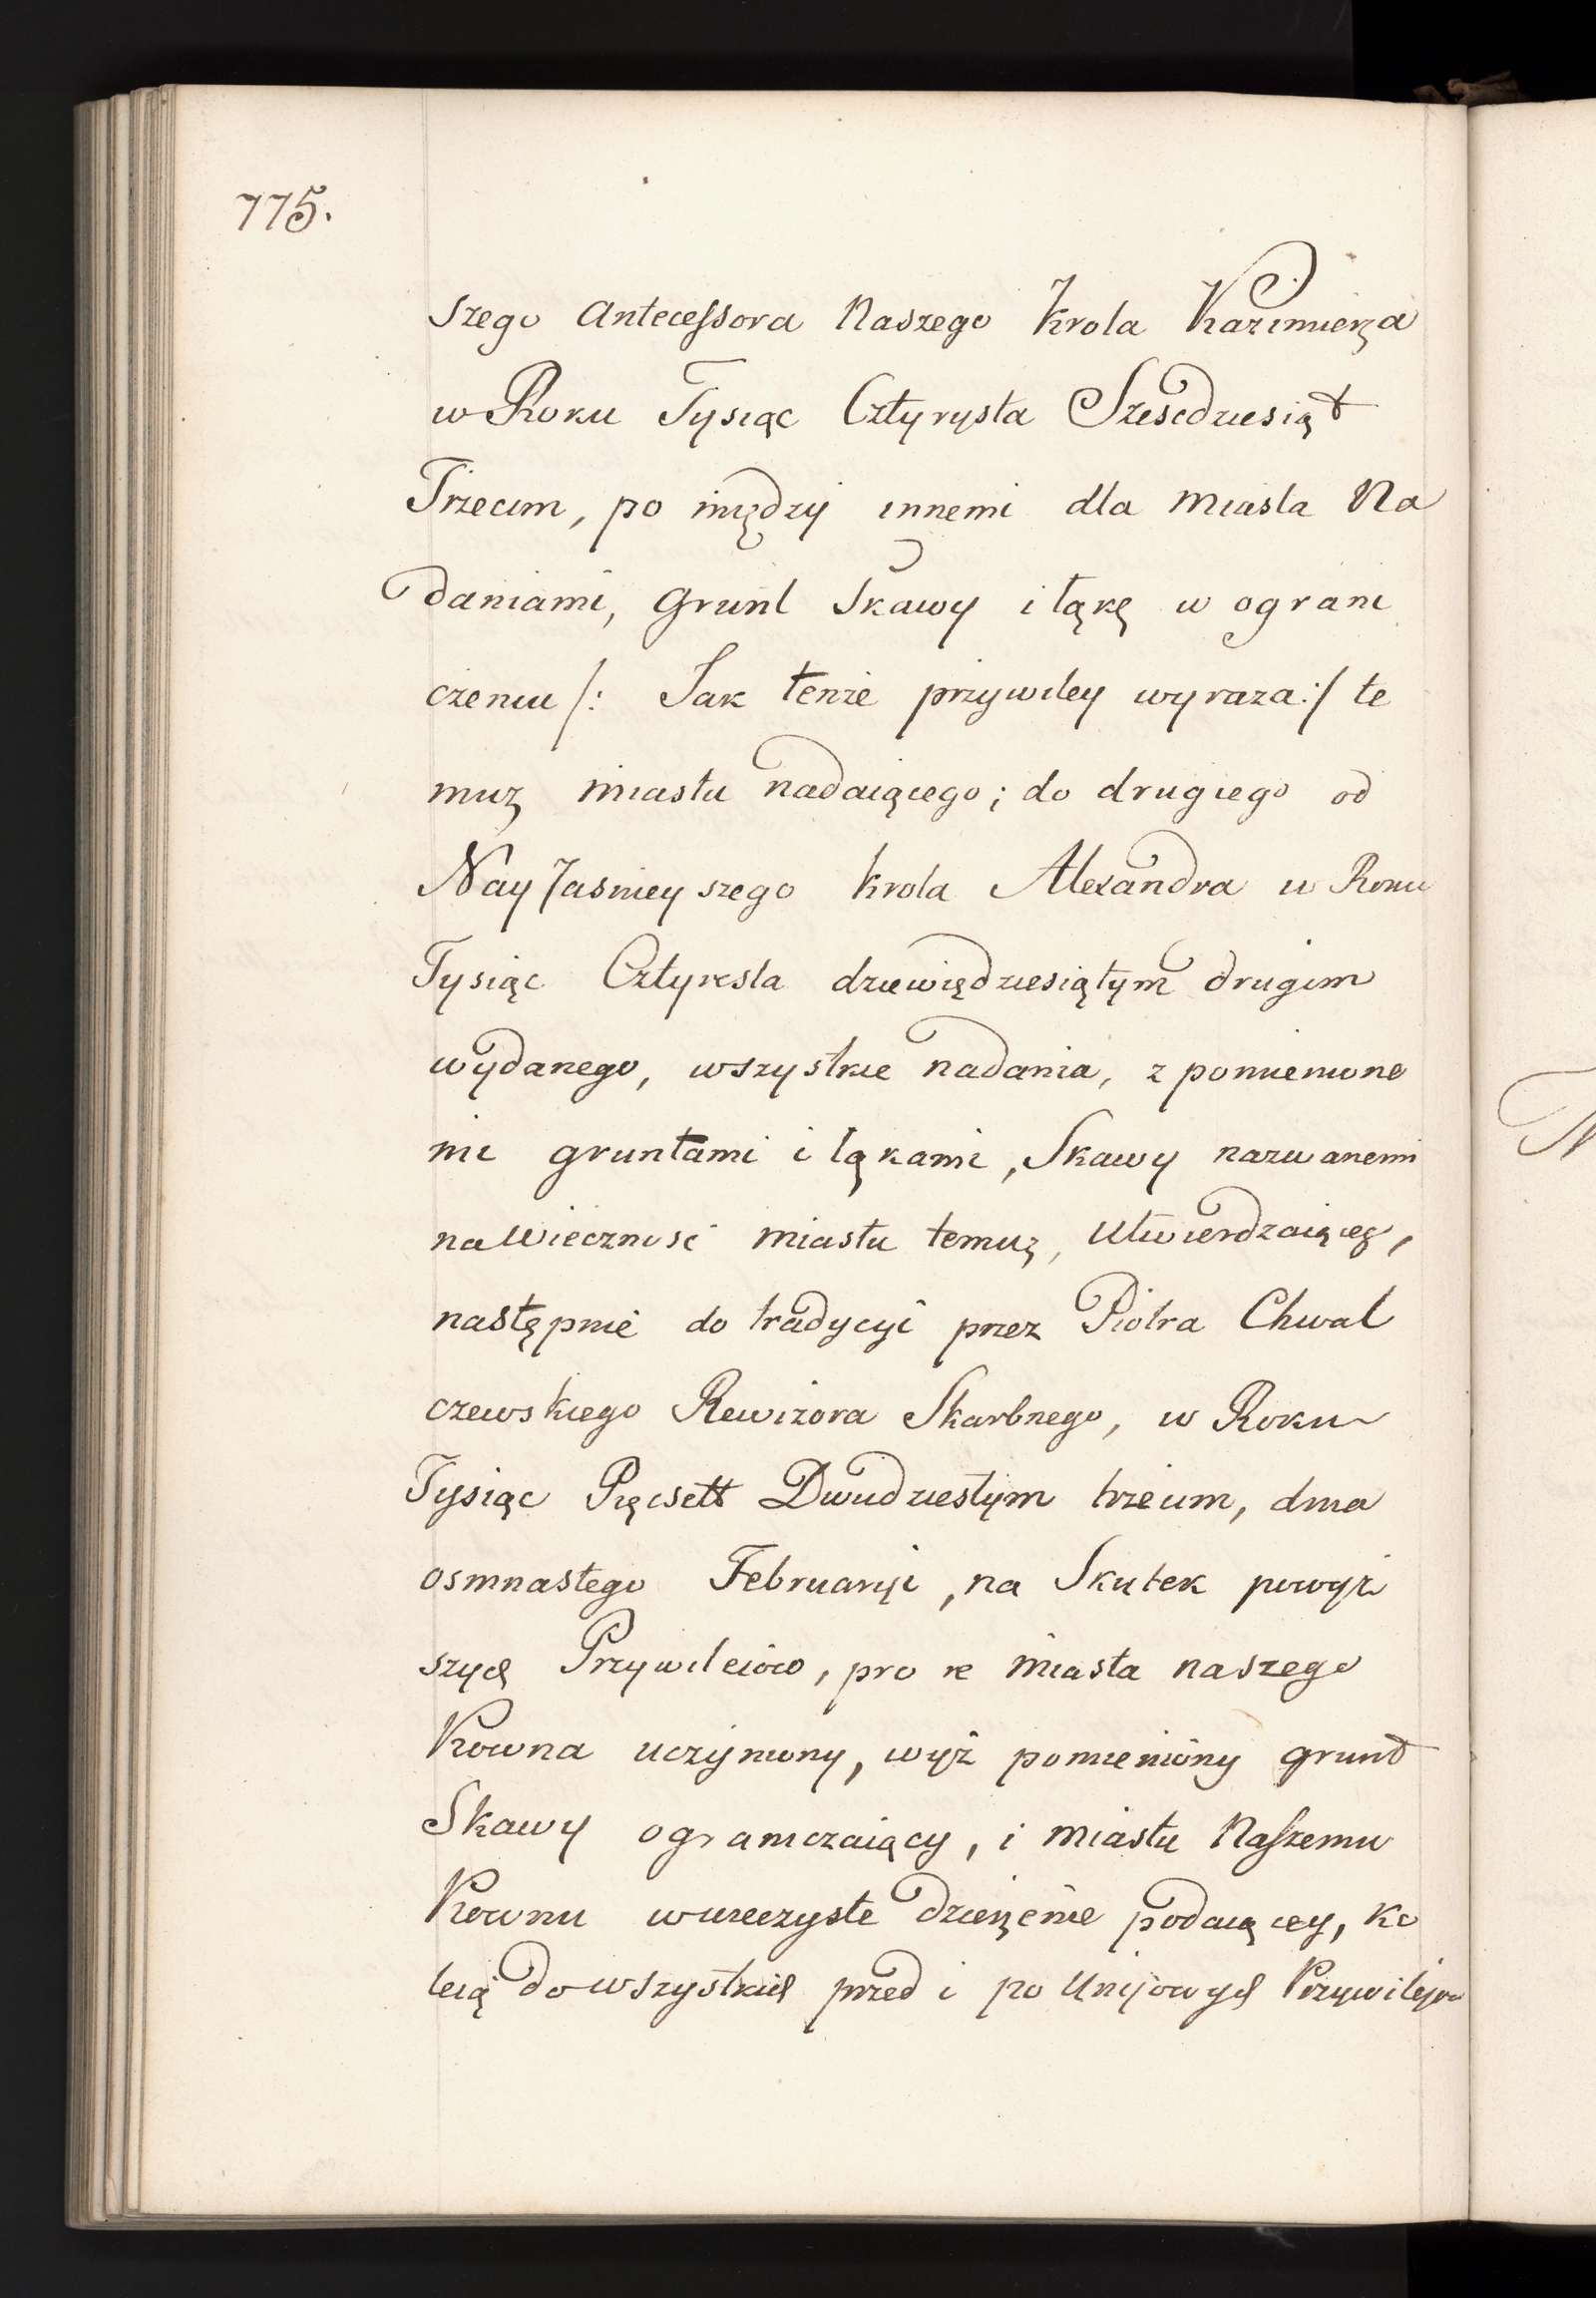 775.
szego Antecessora Naszego Krola Kazimierza
w Roku Tysiąc Cztyrysta Szescdziesiąt
Trzecim, po między innemi dla miasta Na
daniami, Grunt Skawy i łąkę w ograni
czeniu /: Jak tenże przywiley wyraża :/ te
muż miastu nadaiącego; do drugiego od
Nay Jasnieyszego Krola Alexandra w Roku
Tysiąc Cztyresta dziewiędziesiątym drugim
wydanego, wszystkie nadania, z pomienione
mi gruntami i łąkami, Skawy nazwanemi
na Wieczność miastu temuż, Utwierdzaiąceg,
następnie do tradycyi przez Piotra Chwal
czewskiego Rewizora Skarbnego, w Roku
Tysiąc Pięcsett Dwudziestym trzecim, dnia
osmnastego Februaryi, na Skutek powyż
szych Przywileiow, pro re miasta naszego
Kowna uczyniony, wyż pomieniony grunt
Skawy ograniczaiący, i miastu Naszemu
Kownu w wieczyste dzierżenie podaiącey, ko
leią do wszystkich przed i po Unijowych Przywilejow